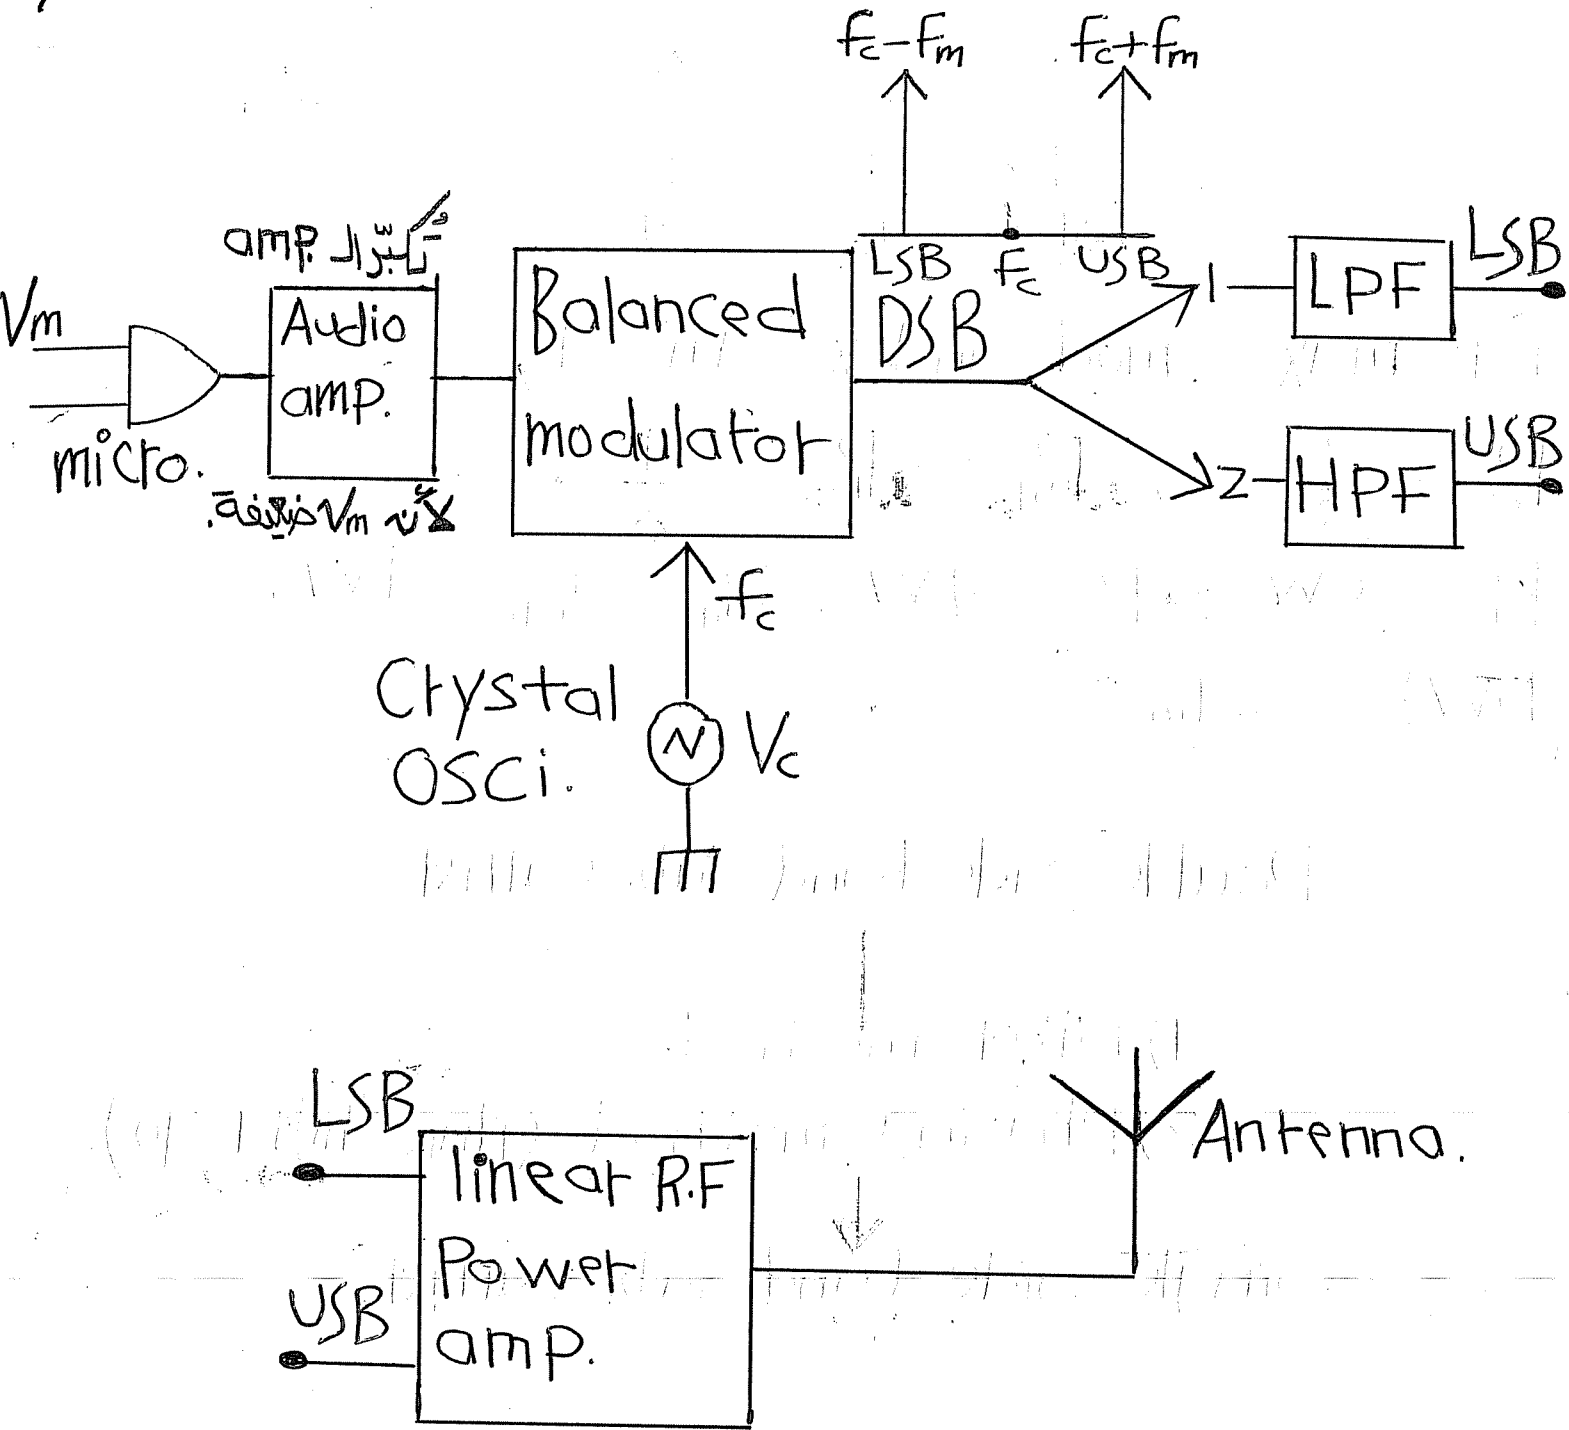 fc-fm
fc+fm
تُكبّر الـ amp.
Vm
micro.
Audio
amp.
لأنّه Vm ضعيفة.
Balanced
modulator
LSB fc USB
DSB
1
LPF
LSB
2
HPF
USB
fc
Crystal
OSCi.
Vc
LSB
USB
linear R.F
Power
amp.
Antenna.